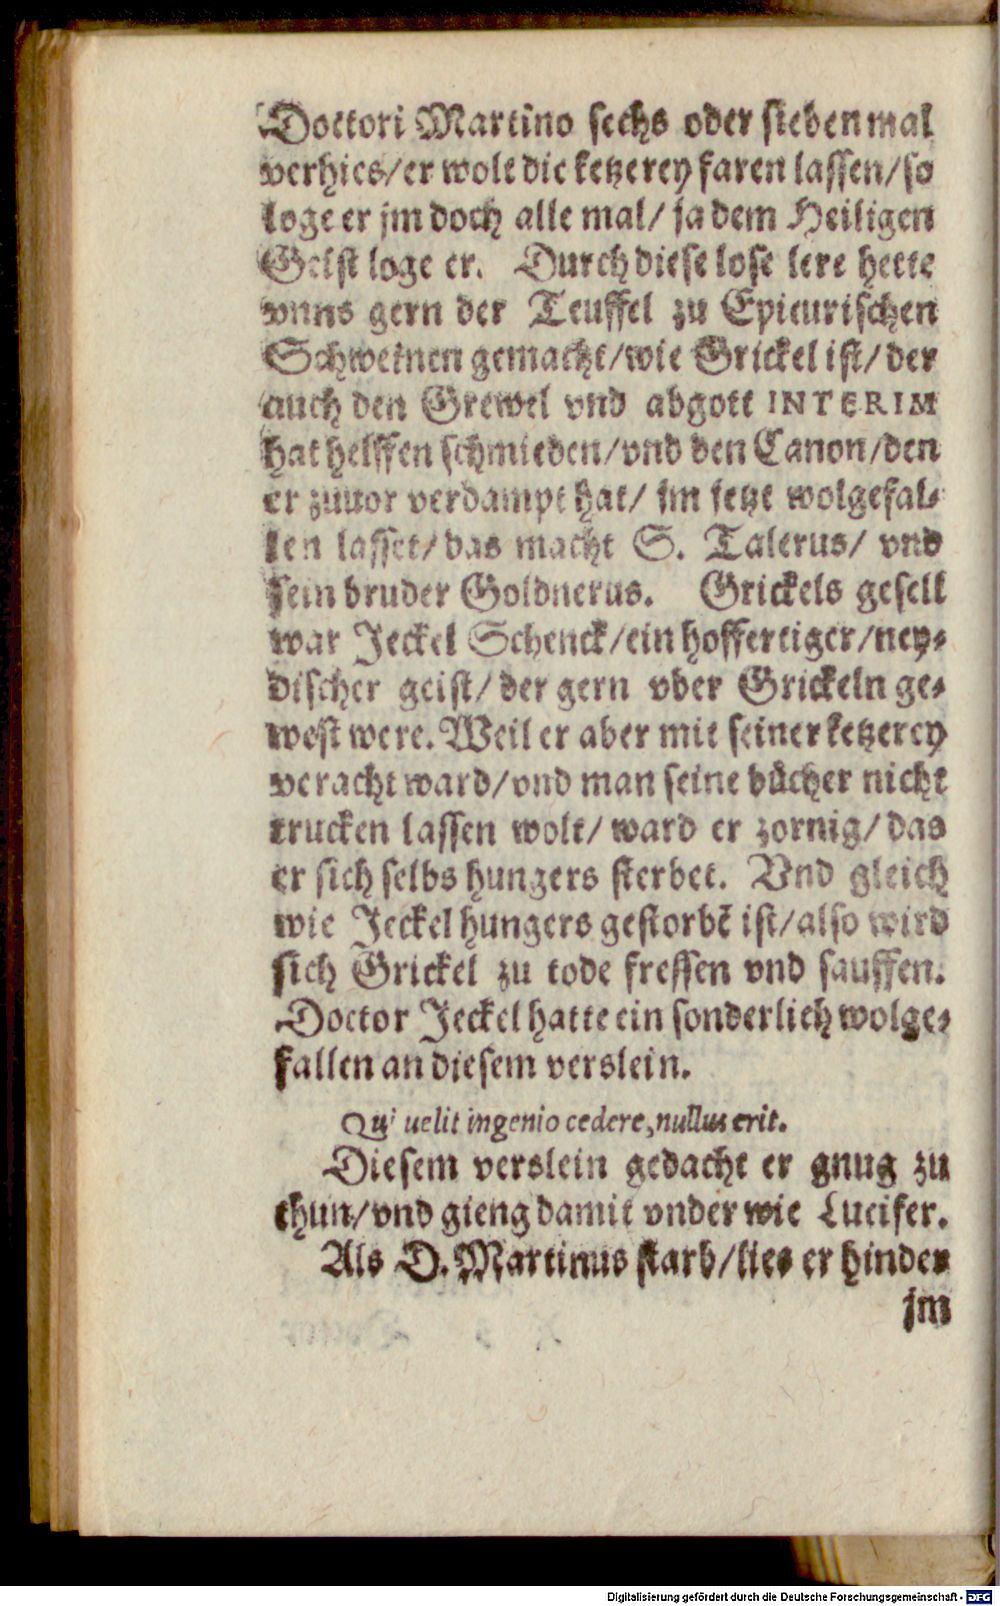 Doctori Martino sechs oder sieben mal
verhies/er wolt die ketzerey faren lassen/so
loge er jm doch alle mal/ ja dem Heiligen
Geist loge er. Durch diese lose lere hette
vnns gern der Teuffel zu Epicurischen
Schweinen gemacht/wie Grickel ist/der
auch den Grewel vnd abgott INTERIM
hat helffen schmieden/vnd den Canon/den
er zuuor verdampt hat/ jm jetzt wolgefal⸗
len lasset/das macht S. Talerus/ vnd
sein bruder Goldnerus. Grickels gesell
war Jeckel Schenck/ein hoffertiger/ney⸗
discher geist/der gern vber Grickeln ge⸗
west were. Weil er aber mit seiner ketzerey
veracht ward/vnd man seine bücher nicht
trucken lassen wolt/ ward er zornig/das
er sich selbs hungers sterbet. Vnd gleich
wie Jeckel hungers gestorbē ist/also wird
sich Grickel zu tode fressen vnd sauffen.
Doctor Jeckel hatte ein sonderlich wolge⸗
fallen an diesem verslein.
Qui uelit ingenio cedere, nullus erit.
Diesem verslein gedacht er gnug zu
thun/vnd gieng damit vnder wie Lucifer.
Als D. Martinus starb/lies er hinder
jm
Digitalisierung gefördert durch die Deutsche Forschungsgemeinschaft - DFG